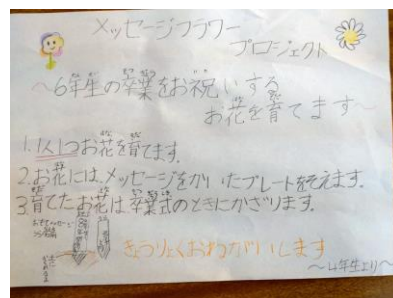 メッセージフラワー
プロジェクト
～6年生の卒業をお祝いする
お花を育てます～
1.1人1つお花を育てます。
2.お花には、メッセージをかいたプレートをそえます。
3.育てたお花は卒業式のときにかざります。
きょうりょくおねがいします
～4年生より～